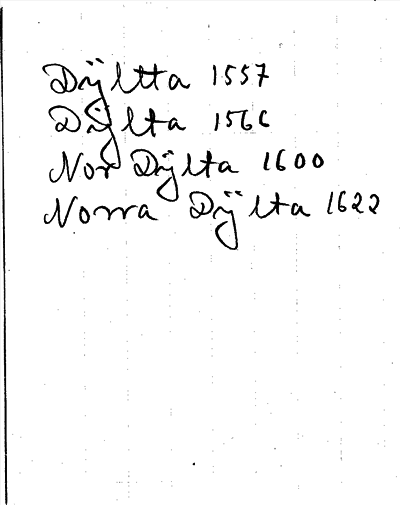 Dÿltta 1557
Dÿlta 1566
Nor Dÿlta 1600
Norra Dÿlta 1622